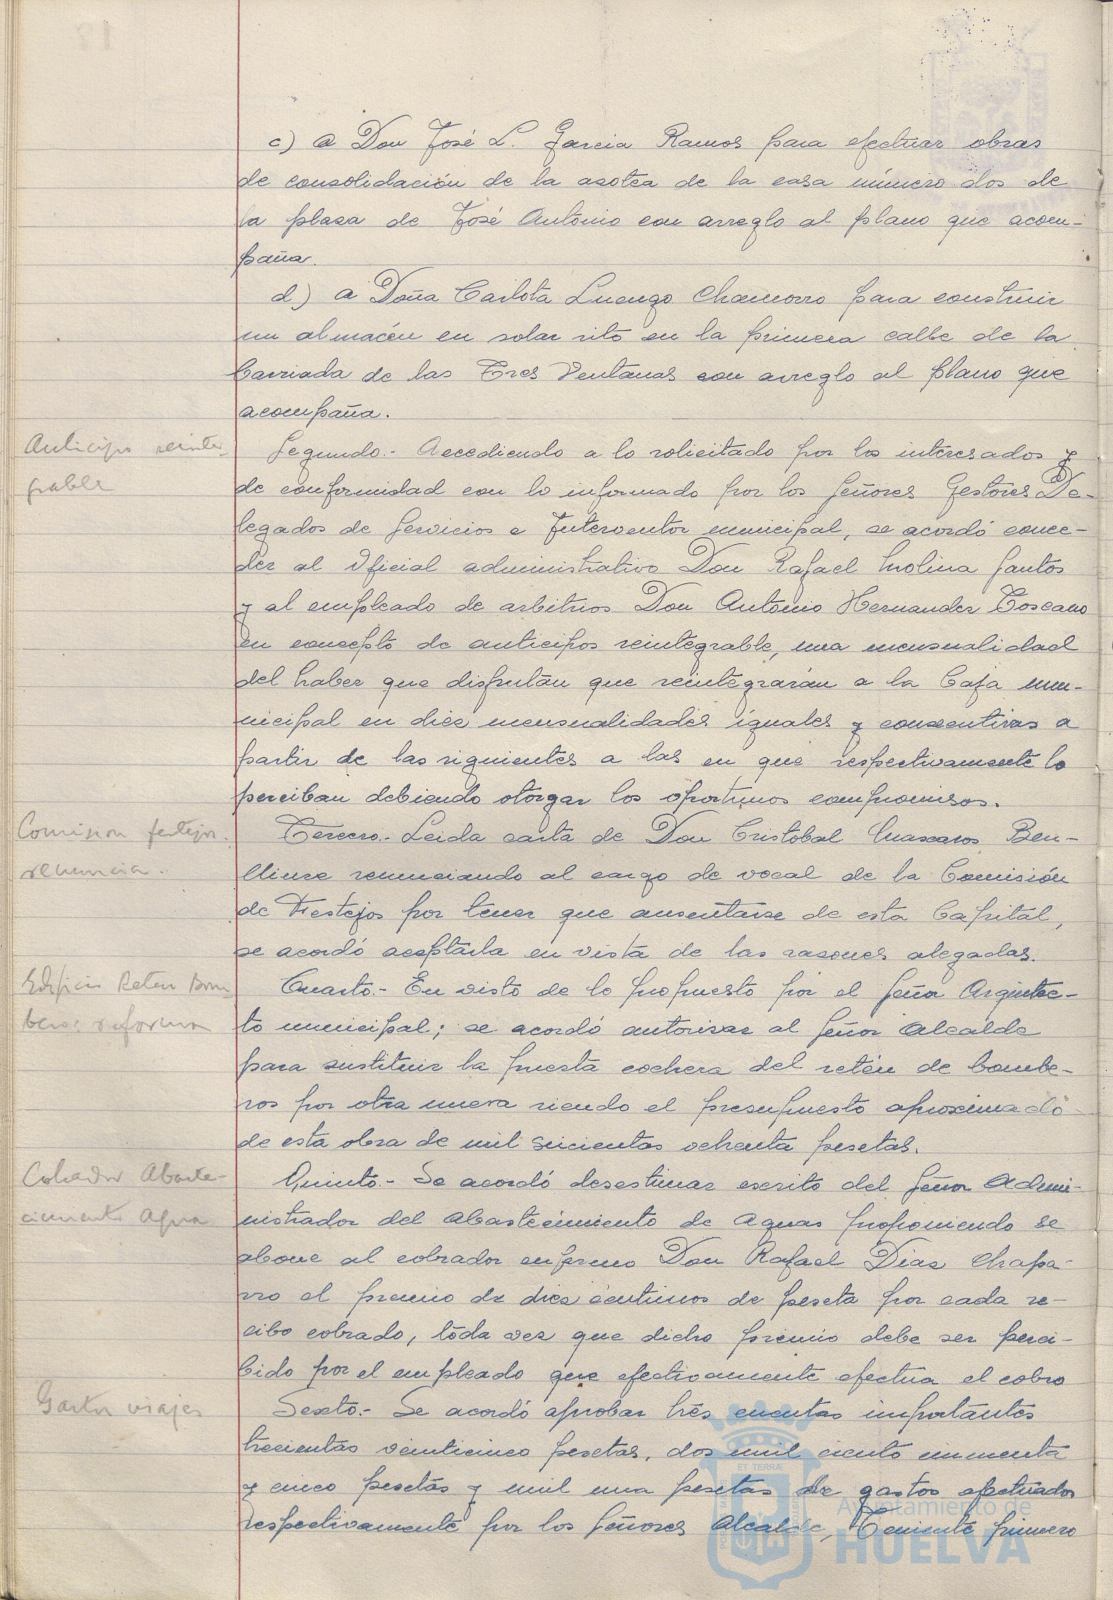 c) a Don José L. Garcia Ramos para efectuar obras
de consolidación de la azotea de la casa número dos de
la plaza de José Antonio con arreglo al plano que acom-
paña.
d) a Doña Carlota Luengo Chamorro para construir
un almacén en solar sito en la primera calle de la
barriada de las Tres Ventanas con arreglo al plano que
acompaña.
Anticipo reinte-
grable
Segundo.- Accediendo a lo solicitado por los interesados y
de conformidad con lo informado por los Señores Gestores De-
legados de Servicios e Interventor municipal, se acordó conce-
der al Oficial administrativo Don Rafael Molina Santos
y al empleado de arbitrios Don Antonio Hernandez Toscano
en concepto de anticipos reintegrable, una mensualidad
del haber que disfrutan que reintegrarán a la Caja mu-
nicipal en diez mensualidades iguales y consecutivas a
partir de las siguientes a las en que respectivamente lo
perciban debiendo otorgar los oportunos compromisos.
Comision festejos.
renuncia.
Tercero.- Leida carta de Don Cristobal Ben-
lliure renunciando al cargo de vocal de la Comisión
de Festejos por tener que ausentarse de esta Capital,
se acordó aceptarla en vista de las razones alegadas.
Edificio Reten Bom
beros reforma
Cuarto.- En visto de lo propuesto por el Señor Arquitec-
to municipal; se acordó autorizar al Señor Alcalde
para sustituir la puerta cochera del retén de bombe-
ros por otra nueva siendo el presupuesto aproximado
de esta obra de mil seicientas ochenta pesetas.
Cobrador Abaste-
cimiento Agua
Quinto.- Se acordó desestimar escrito del Señor Admi-
nistrador del Abastecimiento de Aguas proponiendo se
abone al cobrador enfermo Don Rafael Diaz Chapa-
rro el premio de diez céntimos de peseta por cada re-
cibo cobrado, toda vez que dicho premio debe ser perci-
bido por el empleado que efectivamente efectua el cobro
Gastos viajes
Sexto.- Se acordó aprobar trés cuentas importantes
trecientas veinticinco pesetas, dos mil ciento nuventa
y cinco pesetas y mil una pesetas de gastos efectuados
respectivamente por los Señores Alcalde, Teniente primero
Ayuntamiento de
HUELVA